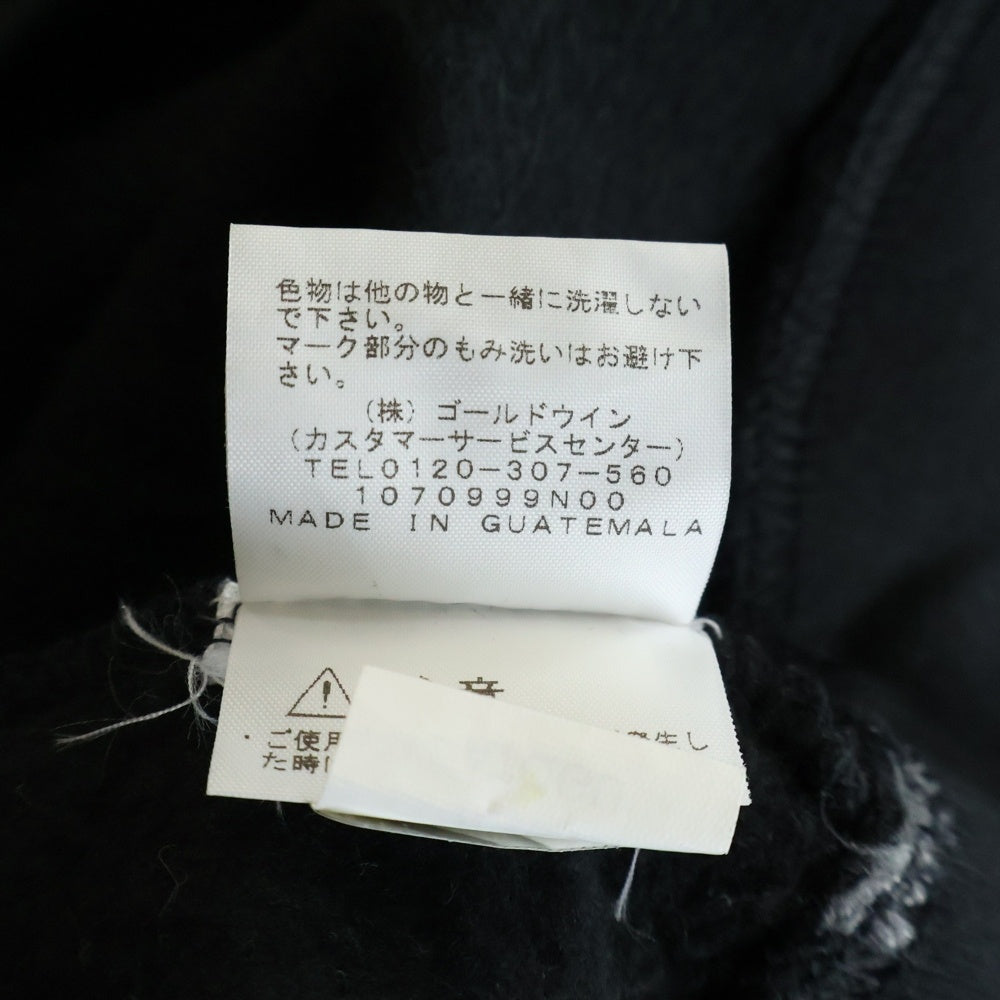 色物は他の物と一緒に洗濯しない
で下さい。
マーク部分のもみ洗いはお避け下
さい。
（株）ゴールドウイン
（カスタマーサービスセンター）
TEL0120-307-560
1070999N00
MADE IN GUATEMALA
・ご使用 生し
た時に